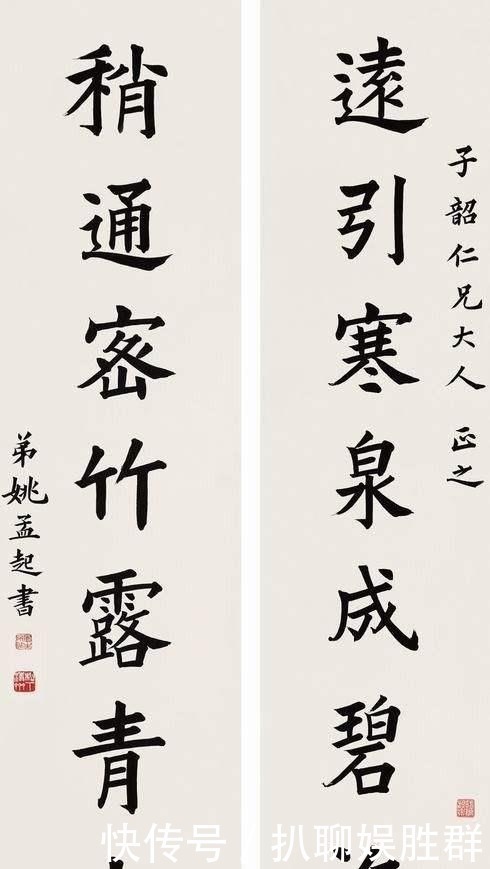 子韶仁兄大人 正之
遠引寒泉成碧
稍通密竹露青
弟姚孟起書
快传号 / 扒聊娱胜群